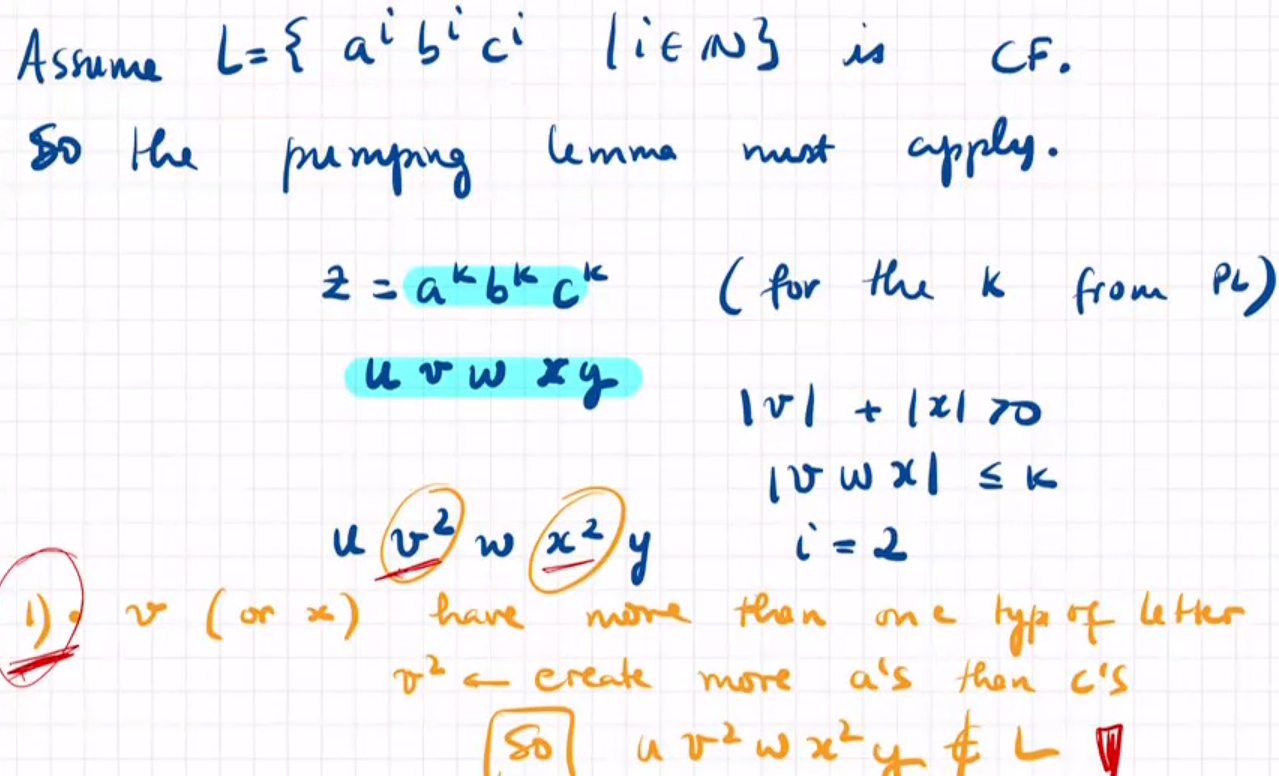 Assume L={ aⁱ bⁱ cⁱ | i ∈ ℕ} is CF.
So the pumping lemma must apply.
z = aᵏ bᵏ cᵏ (for the k from PL)
u v w x y
|v| + |x| > 0
|v w x| ≤ k
u v² w x² y i = 2
1) • v (or x) have more than one typ of letter
v² ← create more a's then c's
So u v² w x² y ∉ L